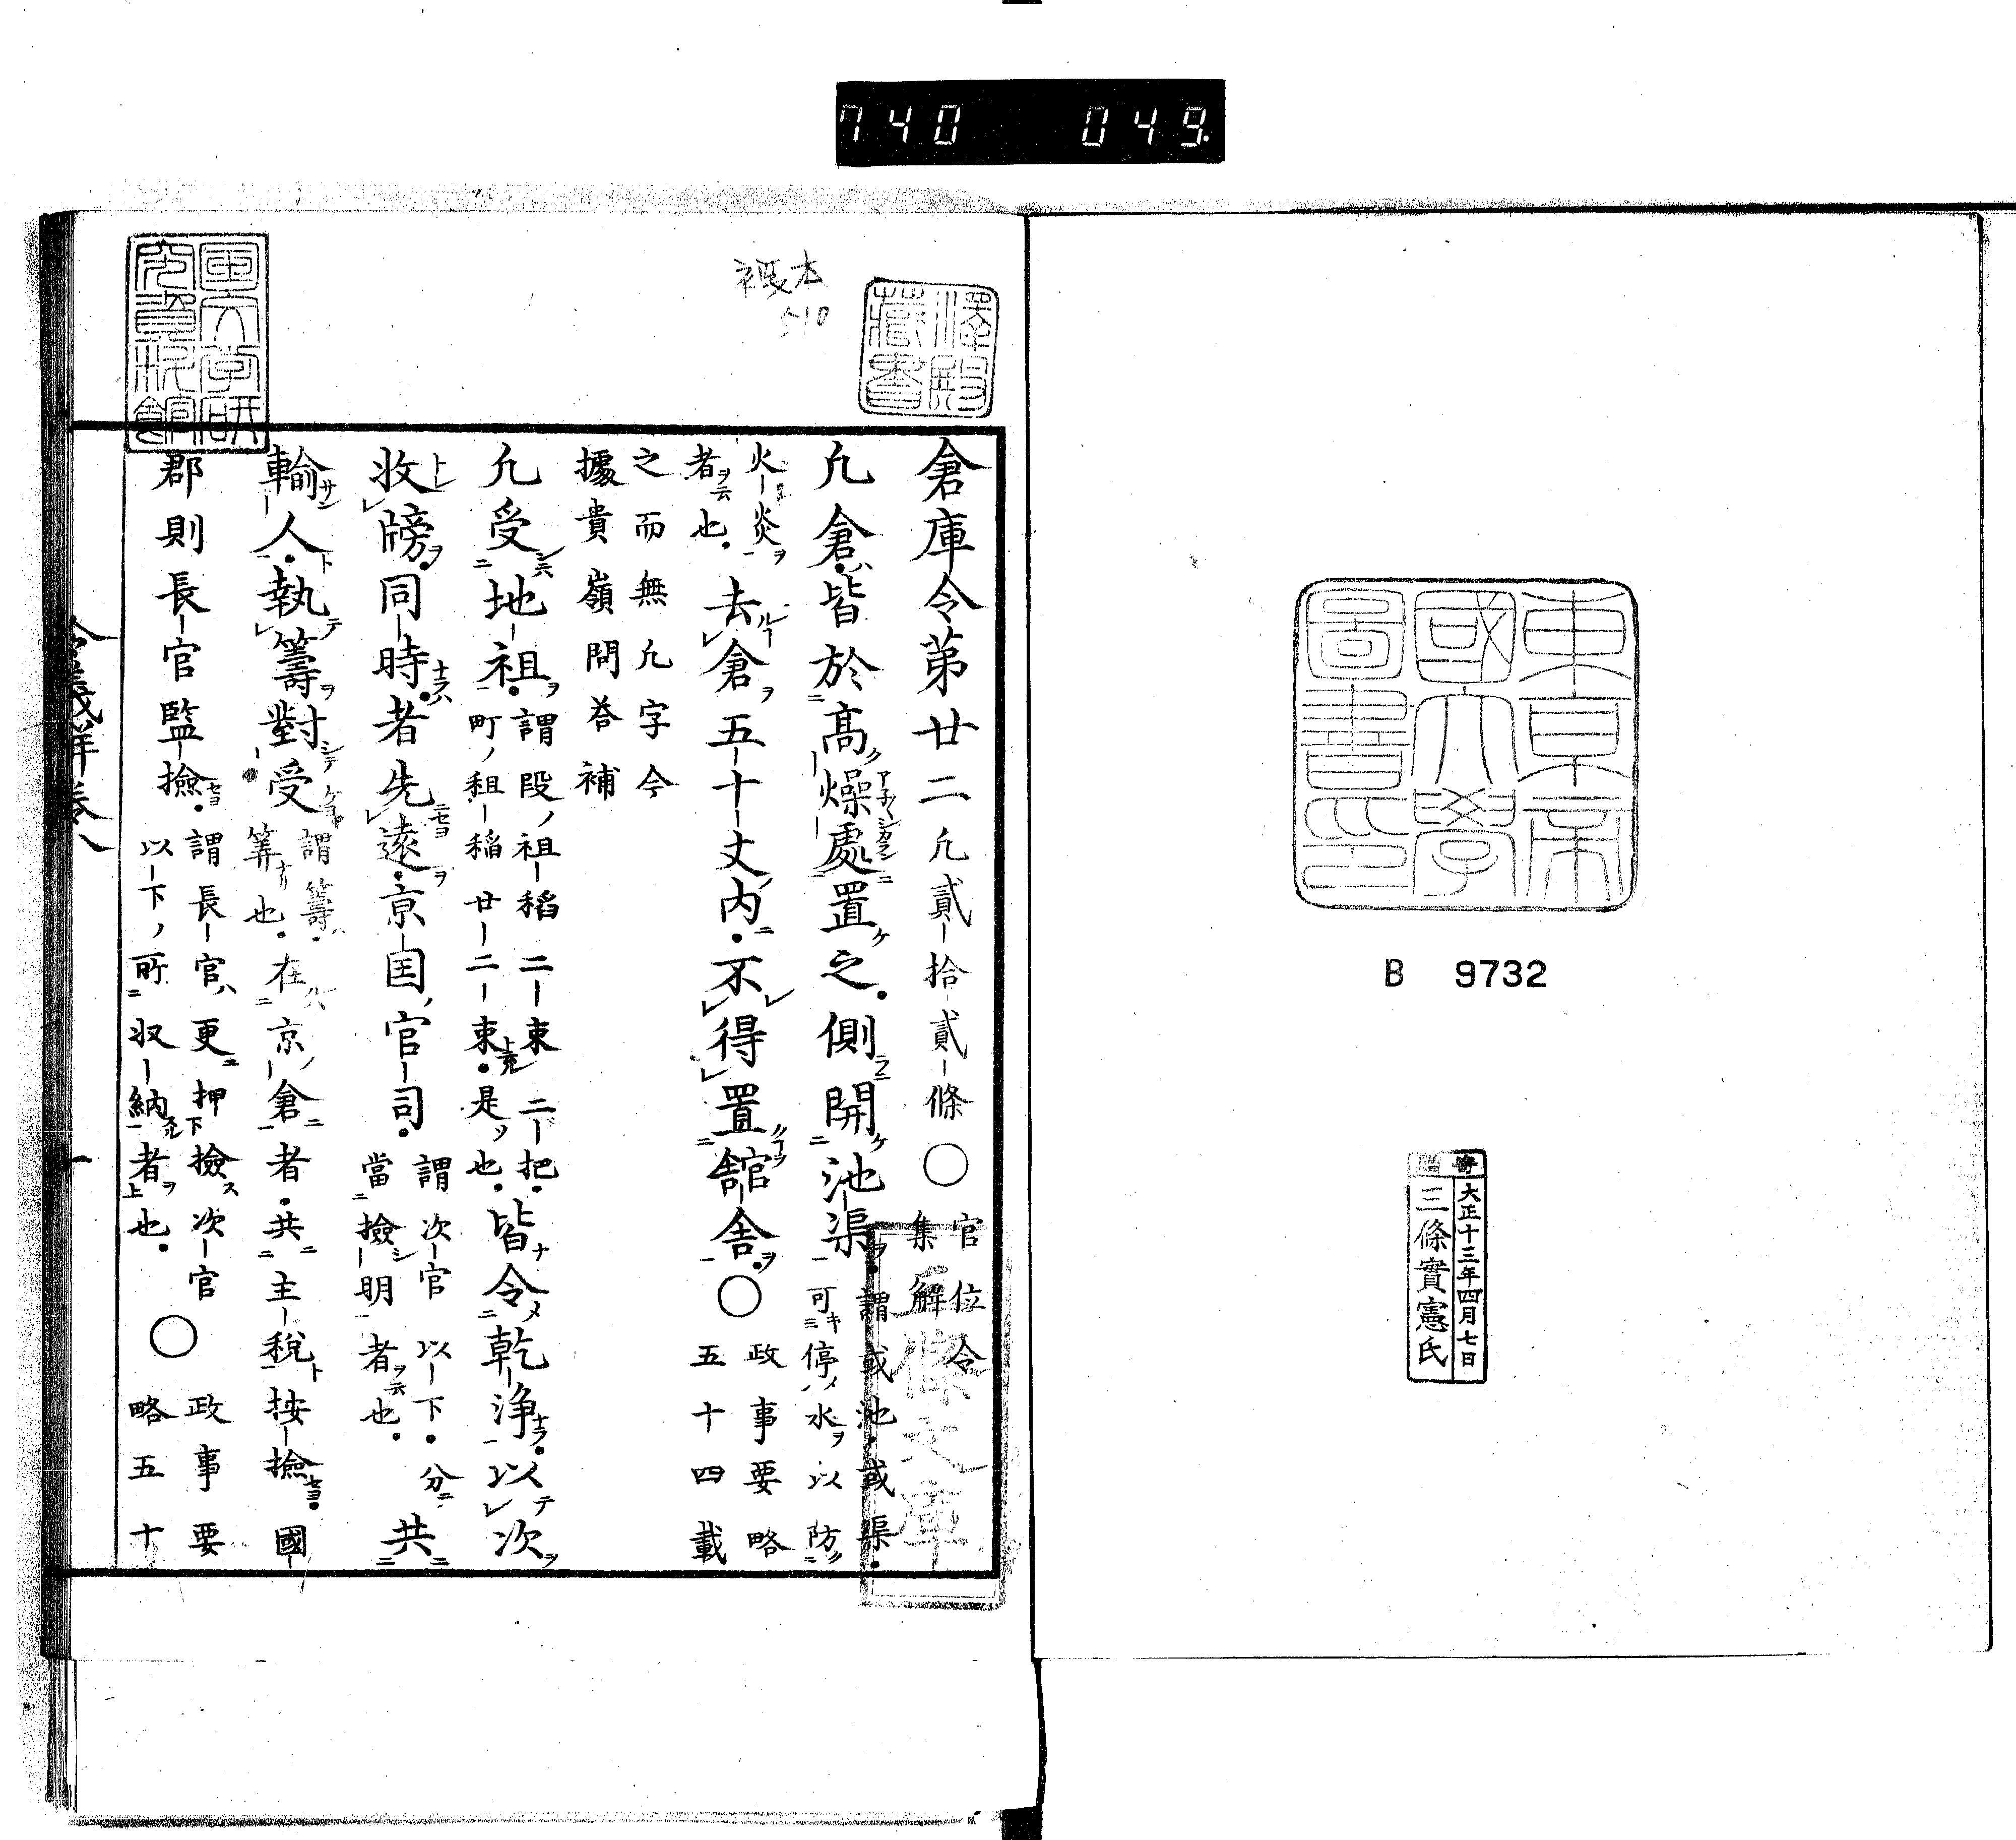 740 049
東京帝
國大學
圖書印
B 9732
寄贈
大正十三年四月七日
三條實憲氏
澤殿
藏書
複本
510
国文学研
究資料館
三條文庫
倉庫令苐廿二 凢貳拾貳條 ○ 官位令
集解
凢倉皆於髙燥處置之側開池渠 謂或池或渠
可停水以防
火炎
者也 去倉五十丈内不得置舘舎 ○ 政事要略
五十四載
之而無凢字今
據貴嶺問答補
凢受地租 謂段租稲二束二把
町租稲廿二束是也 皆令乾浄以次
收牓同時者先遠京国官司 謂次官以下分
當撿明者也 共
輸人執籌對受 謂籌
筭也 在京倉者共主税按撿國
郡則長官監撿 謂長官更押撿次官
以下所収納者也 ○ 政事要
略五十
令義解卷八
一